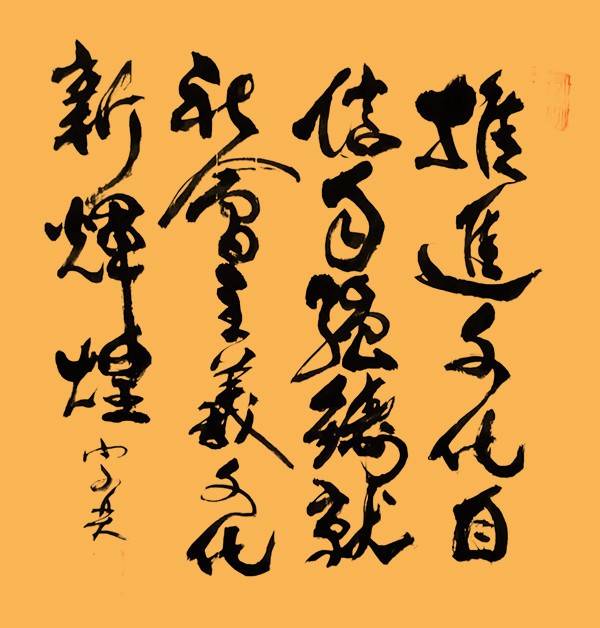 推進文化自
信自强鑄就
社會主義文化
新輝煌